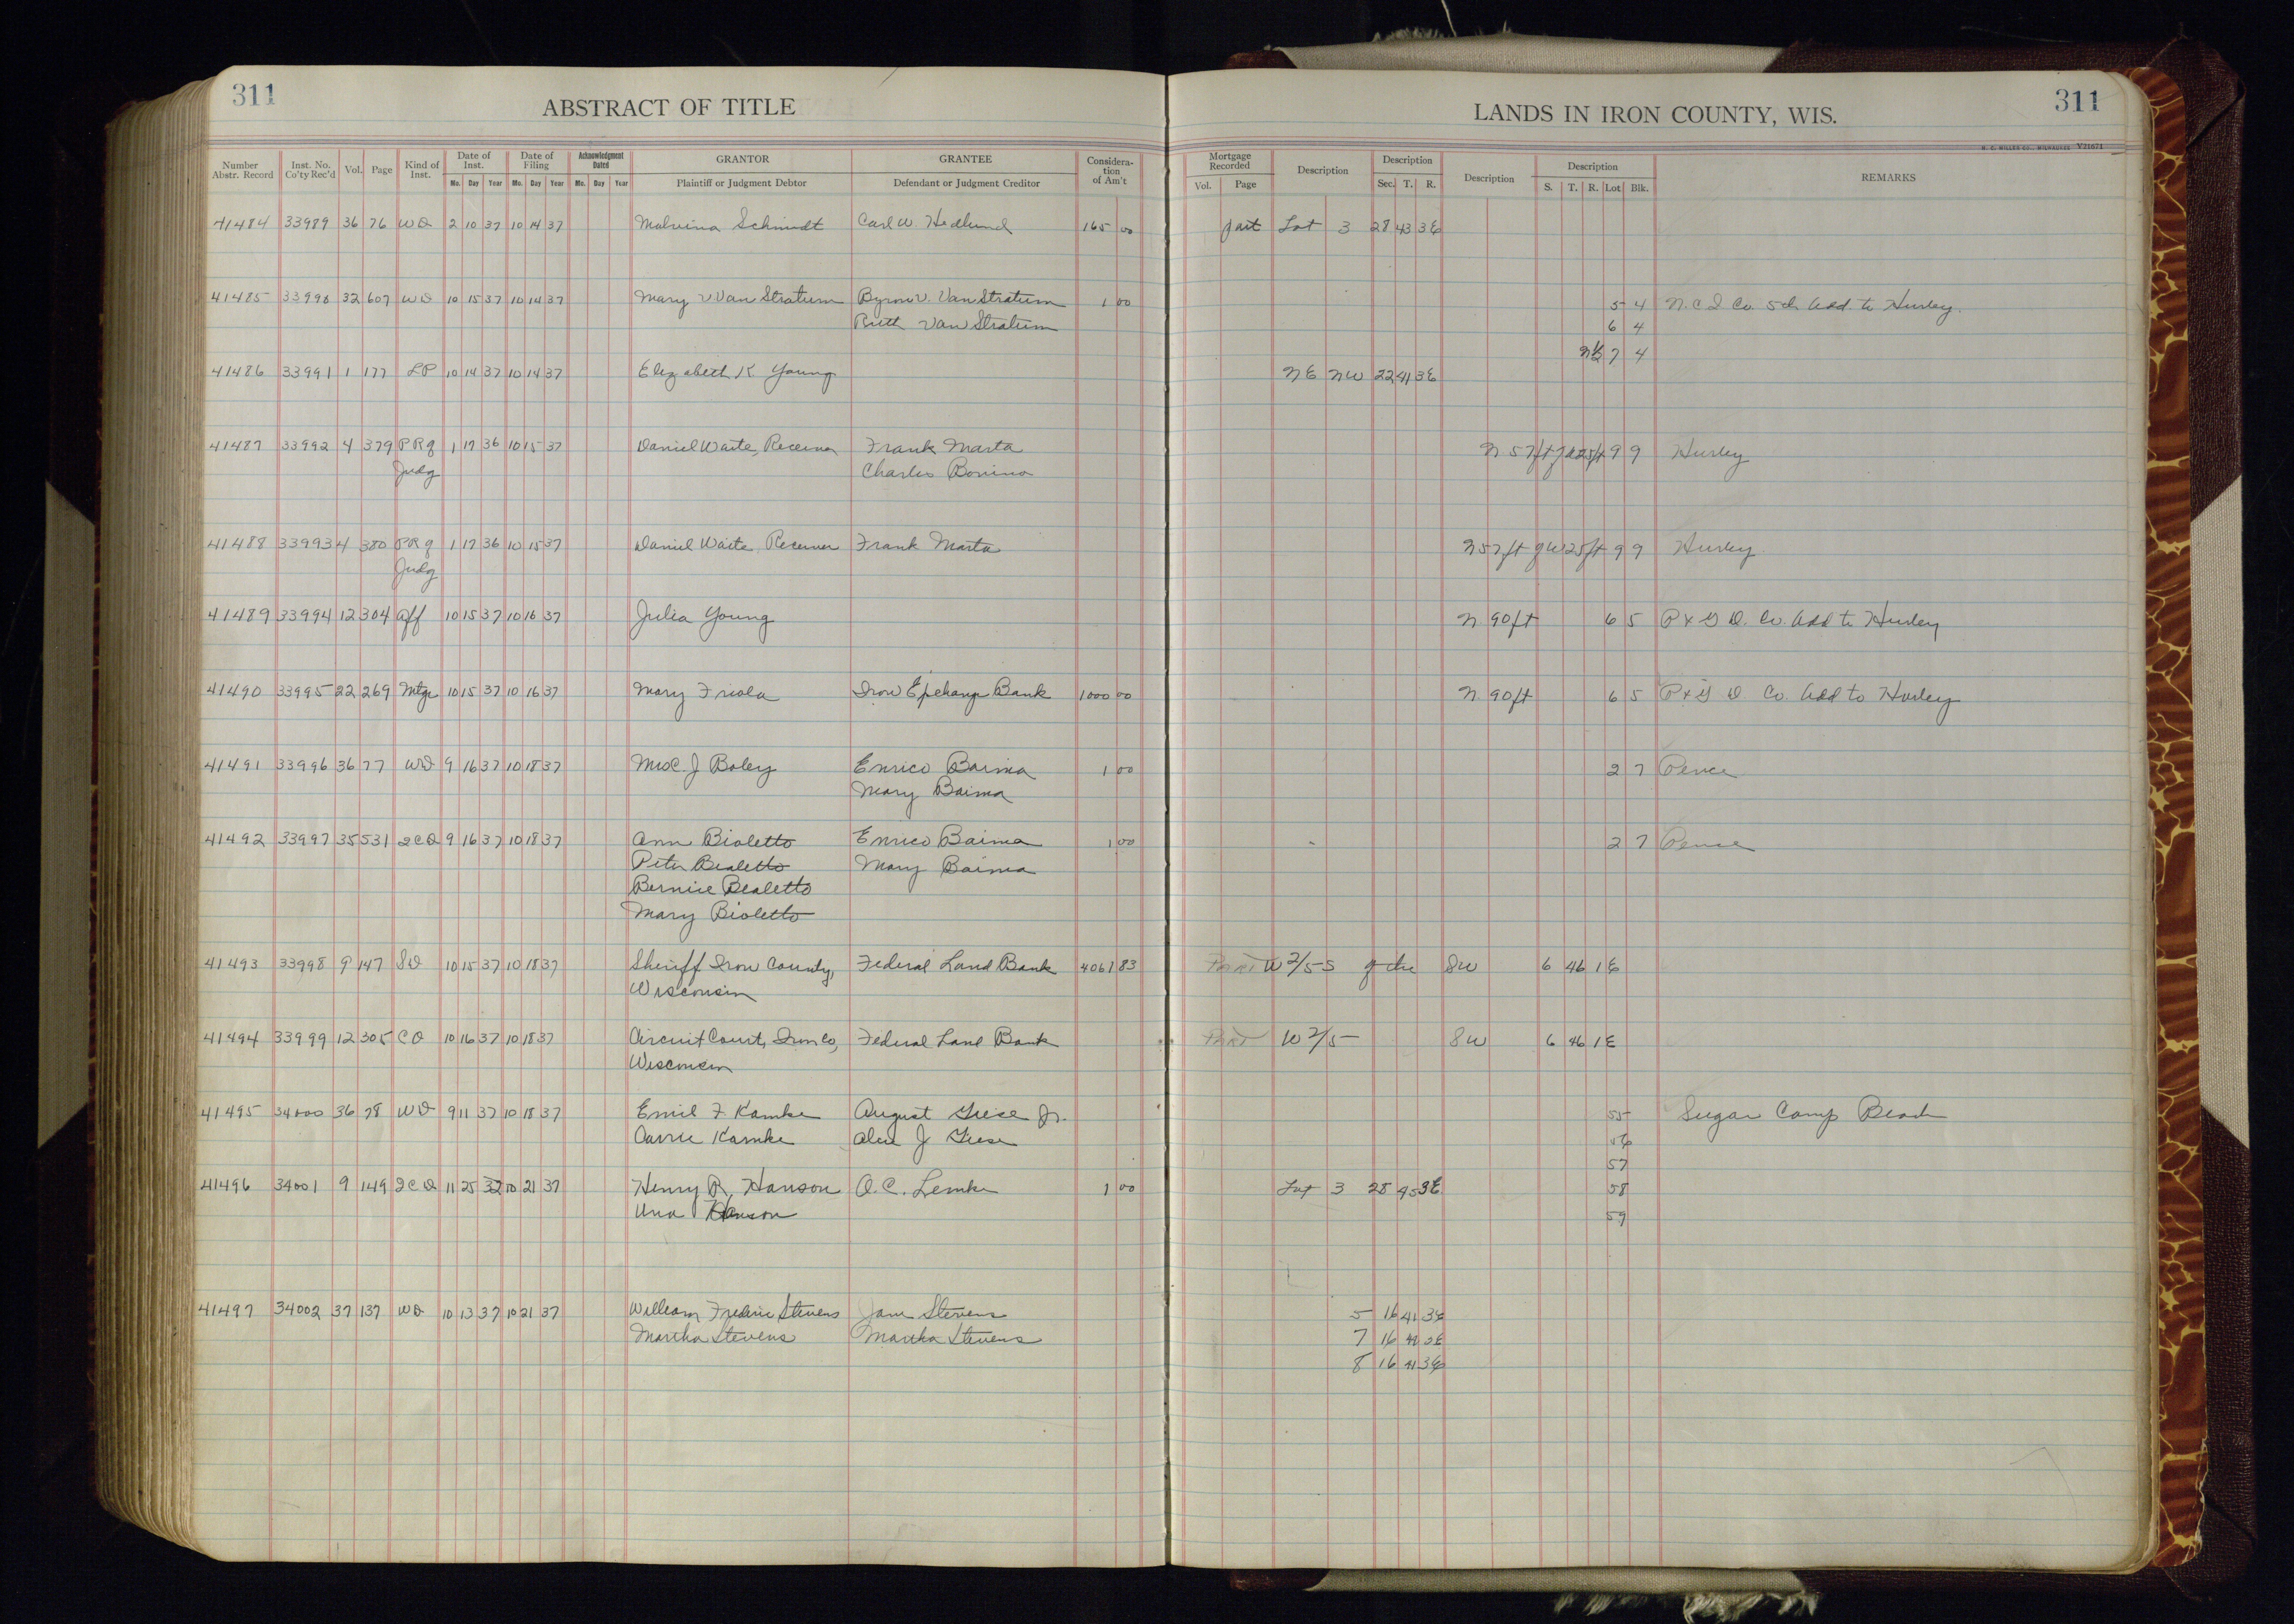 311
ABSTRACT OF TITLE
LANDS IN IRON COUNTY, WIS.
311
H. C. MILLER CO., MILWAUKEE V21671
Number Abstr. Record Inst. No. Co'ty Rec'd Vol. Page Kind of Inst. Date of Inst. Mo. Day Year Date of Filing Mo. Day Year Acknowledgment Dated Mo. Day Year GRANTOR Plaintiff or Judgment Debtor GRANTEE Defendant or Judgment Creditor Considera-tion of Am't Mortgage Recorded Vol. Page Description Description Sec. T. R. Description Description S. T. R. Lot Blk. REMARKS
41484 33989 36 76 WD 2 10 37 10 14 37 Malvina Schmidt Carl W. Hedlund 165 00 part Lot 3 28 43 3E
41485 33990 32 607 WD 10 15 37 10 14 37 Mary V Van Stratum Byron V. Van Stratum 1 00 5 4 N.C.I Co. 5th Add. to Hurley.
Ruth Van Stratum 6 4
N½ 7 4
41486 33991 1 177 LP 10 14 37 10 14 37 Elizabeth K Young NE NW 22 41 3E
41487 33992 4 379 PRg 1 17 36 10 15 37 Daniel Waite, Receiver Frank Marta N. 57 ft of W25ft 9 9 Hurley
Judg Charles Bonino
41488 33993 4 380 PRg 1 17 36 10 15 37 Daniel Waite, Receiver Frank Marta N57 ft of W25 ft 9 9 Hurley.
Judg
41489 33994 12 304 Aff 10 15 37 10 16 37 Julia Young N. 90 ft 6 5 P & G D. Co. Add to Hurley
41490 33995 22 269 Mtge 10 15 37 10 16 37 Mary Friola Iron Exchange Bank 1000 00 N. 90 ft 6 5 P & G D. Co. Add to Hurley
41491 33996 36 77 WD 9 16 37 10 18 37 Mrs C. J Boley Enrico Baima 1 00 2 7 Pence
Mary Baima
41492 33997 35 531 2CD 9 16 37 10 18 37 Ann Bioletto Enrico Baima 1 00 2 7 Pence
Peter Bioletto Mary Baima
Bernice Bioletto
Mary Bioletto
41493 33998 9 147 SD 10 15 37 10 18 37 Sheriff Iron County, Federal Land Bank 4061 83 Part W 2/5 S of the SW 6 46 1E
Wisconsin
41494 33999 12 305 CD 10 16 37 10 18 37 Circuit Court, Iron Co, Federal Land Bank Part W 2/5 SW 6 46 1E
Wisconsin
41495 34000 36 78 WD 9 11 37 10 18 37 Emil F. Kamke August Giese Jr. 55 Sugar Camp Beach
Carrie Kamke J Giese 56
57
41496 34001 9 149 2CD 11 25 32 10 21 37 Henry R. Hanson O. C. Lemke 1 00 Lot 3 28 45 3E 58
Una Hanson 59
41497 34002 37 137 WD 10 13 37 10 21 37 William Frederic Stevens Stevens 5 16 41 3E
Martha Stevens Martha Stevens 7 16 41 3E
8 16 41 3E